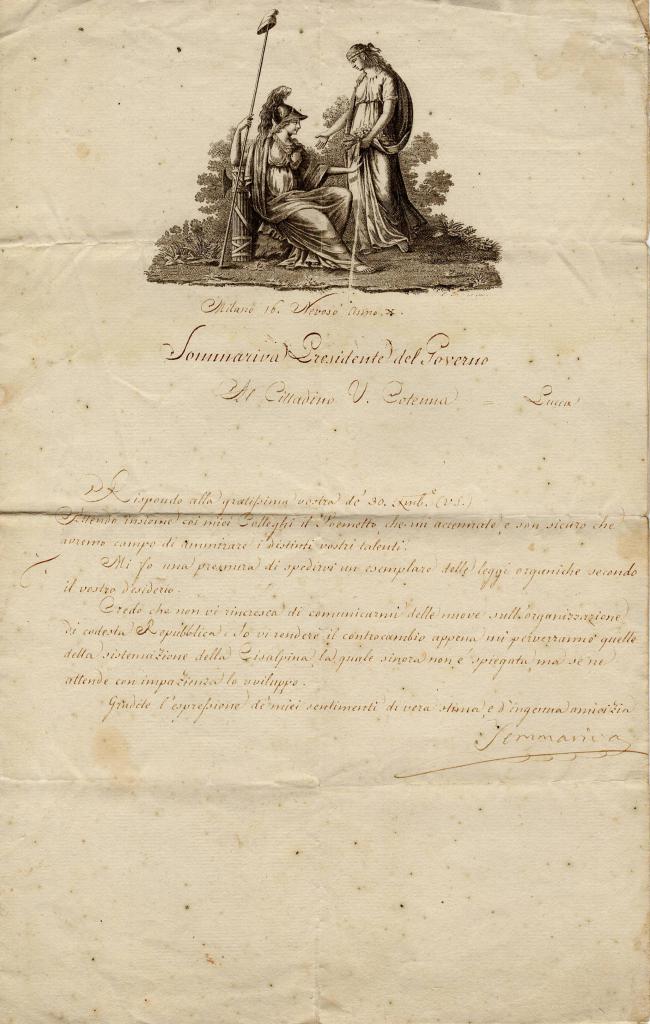 Milano 16. Nevoso anno X.
Sommariva Presidente del Governo
Al Cittadino V. Cotenna = Lucca
Rispondo alla gratissima vostra de' 30. Xmb.e (V.S.)
Attendo insieme coi miei Colleghi il Poemetto che mi accennate, e son sicuro che
avremo campo di ammirare i distinti vostri talenti.
Mi fo una premura di spedirvi un esemplare delle leggi organiche secondo
il vostro desiderio.
Credo che non vi rincresca di comunicarmi delle nuove sull'organizzazione
di codesta Repubblica: Io vi renderò il controcambio appena mi perverranno quelle
della sistemazione della Cisalpina, la quale sinora non è spiegata, ma se ne
attende con impazienza lo sviluppo.
Gradite l'espressione de' miei sentimenti di vera stima, e d'ingenua amicizia
Sommariva